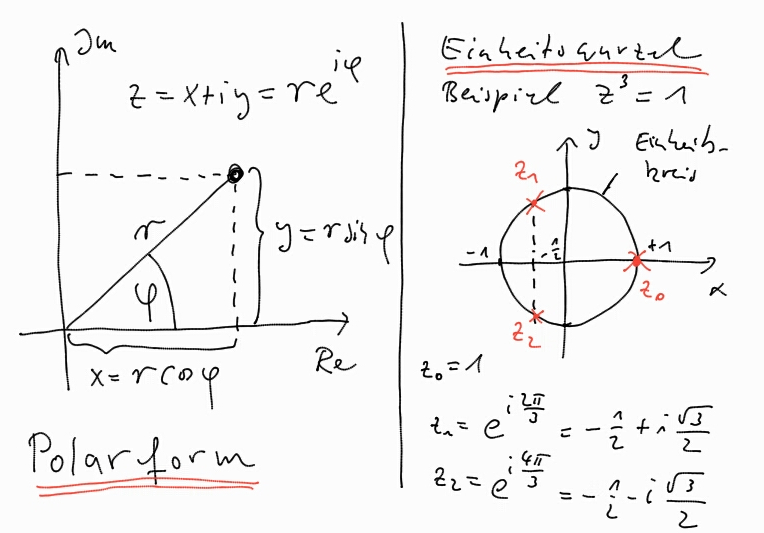 Im
z = x+iy = re^{iφ}
r
φ
y = r sin φ
Re
x = r cos φ
Polarform
Einheitswurzel
Beispiel z³ = 1
y
Einheits-
kreis
z₁
-1
-½
+1
z₀
x
z₂
z₀ = 1
z₁ = e^{i 2π/3} = -1/2 + i √3/2
z₂ = e^{i 4π/3} = -1/2 - i √3/2